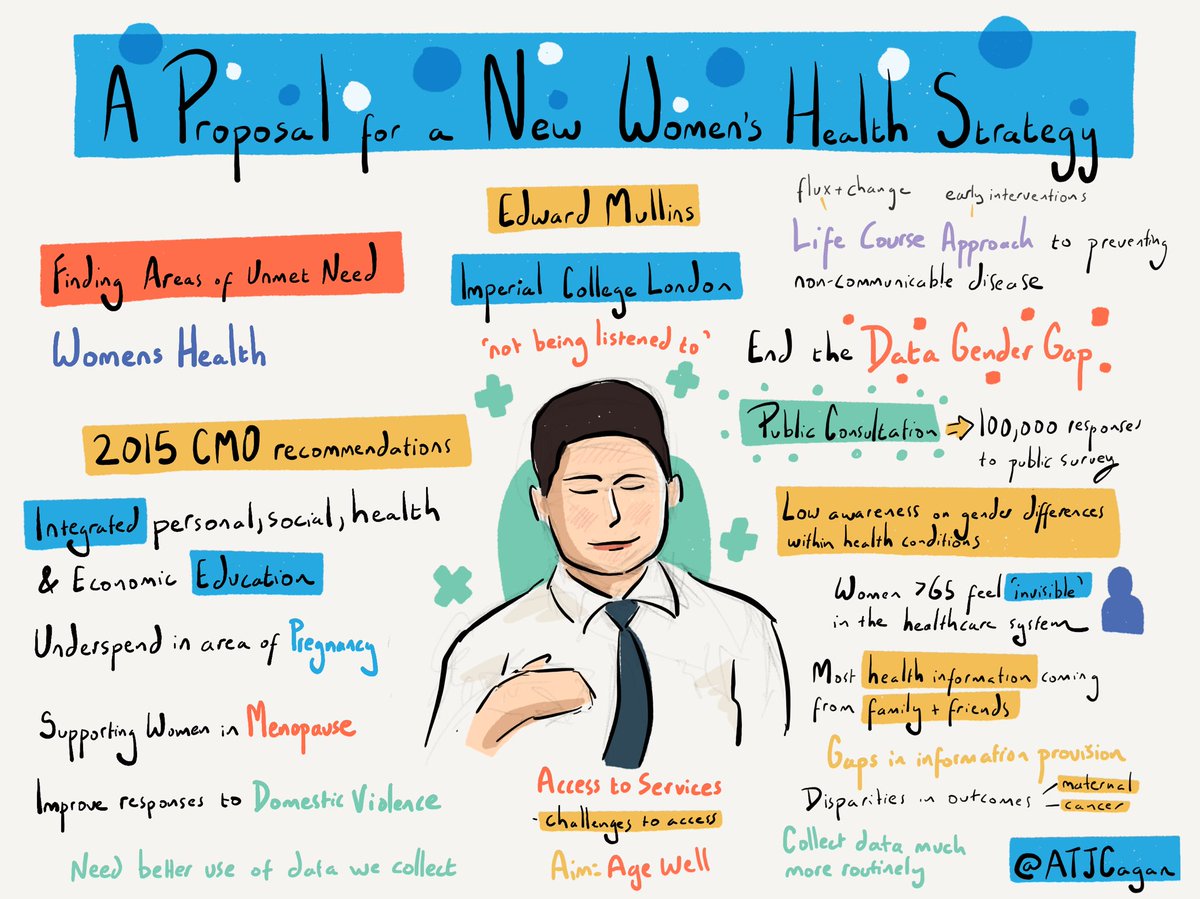 A Proposal for a New Women's Health Strategy
Finding Areas of Unmet Need
Womens Health
2015 CMO recommendations
Integrated personal, social, health
& Economic Education
Underspend in area of Pregnancy
Supporting Women in Menopause
Improve responses to Domestic Violence
Need better use of data we collect
Edward Mullins
Imperial College London
'not being listened to'
Access to Services
- challenges to access
Aim: Age Well
flux + change
early interventions
Life Course Approach to preventing
non-communicable disease
End the Data Gender Gap
Public Consultation ⇒ 100,000 responses
to public survey
Low awareness on gender differences
within health conditions
Women >65 feel 'invisible'
in the healthcare system
Most health information coming
from family + friends
Gaps in information provision
Disparities in outcomes
maternal
cancer
Collect data much
more routinely
@ATJCagan